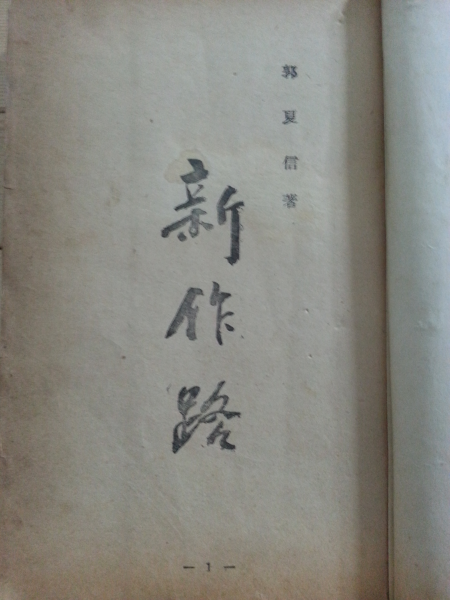 郭夏信著
新作路
— 1 —